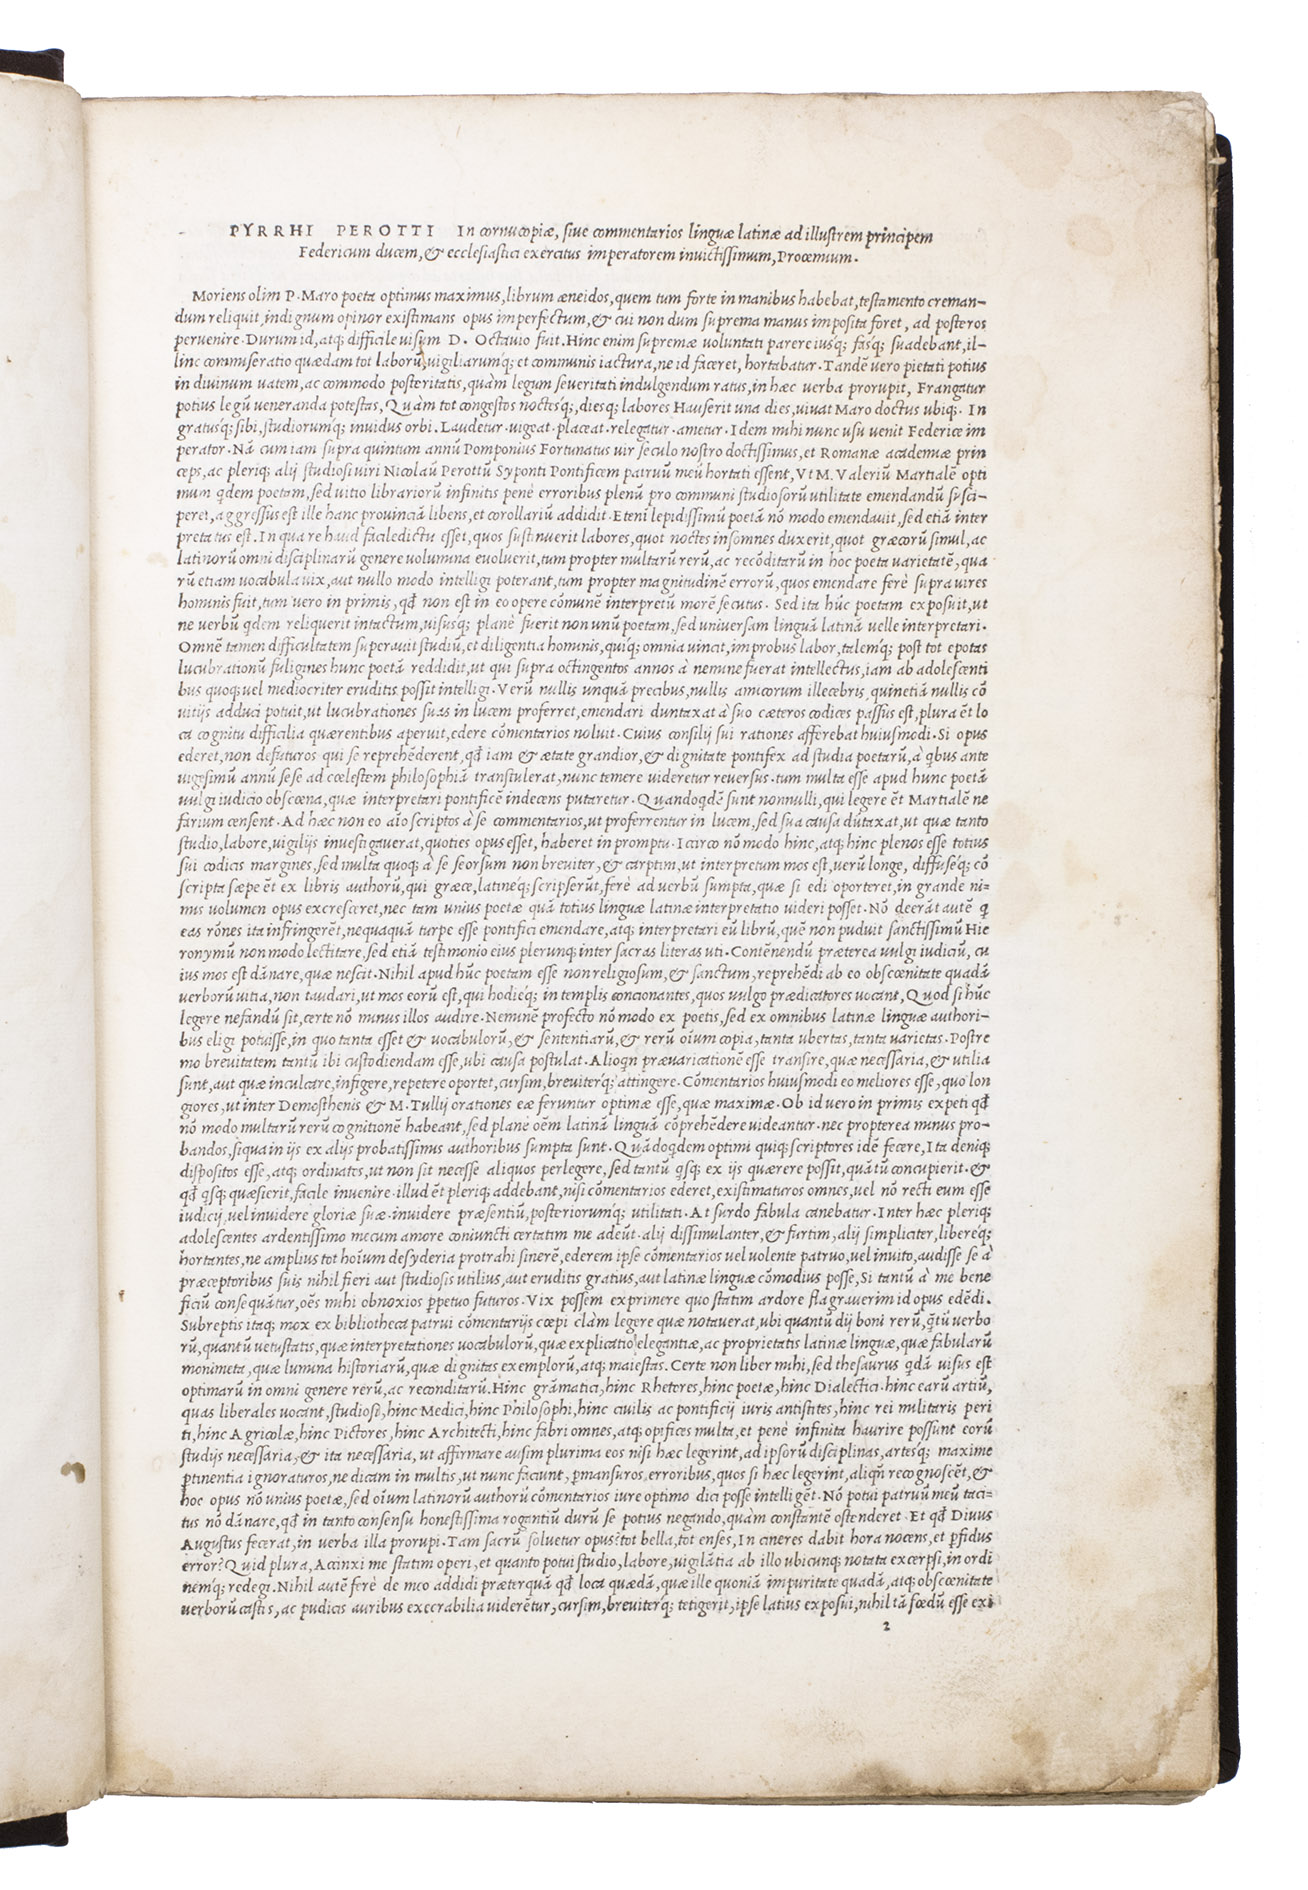 PYRRHI PEROTTI In cornucopiæ, sive commentarios linguæ latinæ ad illustrem principem
Federicum ducem, & ecclesiastici exercitus imperatorem invictissimum, Prooemium.
Moriens olim P. Maro poeta optimus maximus, librum æneidos, quem tum forte in manibus habebat, testamento creman-
dum reliquit, indignum opinor existimans opus imperfectum, & cui non dum suprema manus imposita foret, ad posteros
pervenire. Durum id, atq; difficile visum D. Octavio fuit. Hinc enim supremæ voluntati parere iusq; fasq; suadebant, il-
linc commiseratio quædam tot laborū, vigiliarumq; et communis iactura, ne id faceret, hortabatur. Tandē vero pietati potius
in divinum vatem, ac commodo posteritatis, quàm legum severitati indulgendum ratus, in hæc verba prorupit, Frangatur
potius legū veneranda potestas, Quàm tot congestos noctesq;, diesq; labores Hauserit una dies, vivat Maro doctus ubiq;. In
gratusq; sibi, studiorumq; invidus orbi. Laudetur. vigeat. placeat. relegatur. ametur. Idem mihi nunc usu venit Federice im
perator. Nā cum iam supra quintum annū Pomponius Fortunatus vir seculo nostro doctissimus, et Romanæ academiæ prin
ceps, ac pleriq; alij studiosi viri Nicolaū Perottū Syponti Pontificem patruū meū hortati essent, Vt M. Valeriū Martialē opti
mum qdem poetam, sed vitio librariorū infinitis penè erroribus plenū pro communi studiosorū utilitate emendandū susci-
peret, aggressus est ille hanc provinciā libens, et corollariū addidit. Etenī lepidissimū poetā nō modo emendavit, sed etiā inter
pretatus est. In qua re haud facile dictu esset, quos sustinuerit labores, quot noctes insomnes duxerit, quot græcorū simul, ac
latinorū omni disciplinarū genere volumina evoluerit, tum propter multarū rerū, ac recōditarū in hoc poeta varietatē, qua
rū etiam vocabula vix, aut nullo modo intelligi poterant, tum propter magnitudinē errorū, quos emendare ferè supra vires
hominis fuit, tum vero in primis, qd non est in eo opere cōmunē interpretū morē secutus. Sed ita hūc poetam exposuit, ut
ne verbū qdem reliquerit intactum, visusq; planè fuerit non unū poetam, sed universam linguā latinā velle interpretari.
Omnē tamen difficultatem superavit studiū, et diligentia hominis, quiq; omnia vincit, improbus labor, talemq; post tot epotas
lucubrationū fuligines hunc poetā reddidit, ut qui supra octingentos annos à nemine fuerat intellectus, iam ab adolescenti
bus quoq; vel mediocriter eruditis possit intelligi. Verū nullis unquā precibus, nullis amicorum illecebris, quinetiā nullis cō
vitijs adduci potuit, ut lucubrationes suas in lucem proferret, emendari duntaxat à suo cæteros codices passus est, plura ēt lo
ca cognitu difficilia quærentibus aperuit, edere cōmentarios noluit. Cuius consilij sui rationes afferebat huiusmodi. Si opus
ederet, non defuturos qui se reprehēderent, qd iam & ætate grandior, & dignitate pontifex ad studia poetarū, à qbus ante
vigesimū annū sese ad cœlestem philosophiā transtulerat, nunc temere videretur reversus. tum multa esse apud hunc poetā
vulgi iudicio obscœna, quæ interpretari pontificē indecens putaretur. Quandoqdē sunt nonnulli, qui legere ēt Martialē ne
farium censent. Ad hæc non eo aīo scriptos à se commentarios, ut proferrentur in lucem, sed sua causa dūtaxat, ut quæ tanto
studio, labore, vigilijs investigaverat, quoties opus esset, haberet in promptu. Icirco nō modo hinc, atq; hinc plenos esse totius
sui codicis margines, sed multa quoq; à se seorsum non breviter, & carptim, ut interpretum mos est, verū longe, diffuseq; cō
scripta sæpe ēt ex libris authorū, qui græce, latineq; scripserūt, ferè ad verbū sumpta, quæ si edi oporteret, in grande ni-
mis volumen opus excresceret, nec tam unius poetæ quā totius linguæ latinæ interpretatio videri posset. Nō deerāt autē q
eas rōnes ita infringerēt, nequaquā turpe esse pontifici emendare, atq; interpretari eū librū, quē non puduit sanctissimū Hie
ronymū non modo lectitare, sed etiā testimonio eius plerunq; inter sacras literas uti. Contēnendū præterea vulgi iudiciū, cu
ius mos est dānare, quæ nescit. Nihil apud hūc poetam esse non religiosum, & sanctum, reprehēdi ab eo obscœnitate quadā
verborū vitia, non laudari, ut mos eorū est, qui hodieq; in templis concionantes, quos vulgo prædicatores vocant, Quod si hūc
legere nefandū sit, certe nō minus illos audire. Neminē profecto nō modo ex poetis, sed ex omnibus latinæ linguæ authori-
bus eligi potuisse, in quo tanta esset & vocabulorū, & sententiarū, & rerū oīum copia, tanta ubertas, tanta varietas. Postre
mo brevitatem tantū ibi custodiendam esse, ubi causa postulat. Alioqn prævaricationē esse transire, quæ necessaria, & utilia
sunt, aut quæ inculcare, infigere, repetere oportet, cursim, breviterq; attingere. Cōmentarios huiusmodi eo meliores esse, quo lon
giores, ut inter Demosthenis & M. Tullij orationes eæ feruntur optimæ esse, quæ maximæ. Ob id vero in primis expeti qd
nō modo multarū rerū cognitionē habeant, sed planè oēm latinā linguā cōprehēdere videantur. nec propterea minus pro-
bandos, siqua in ijs ex alijs probatissimis authoribus sumpta sunt. Quādoqdem optimi quiq; scriptores idē fecere, Ita deniq;
dispositos esse, atq; ordinatos, ut non sit necesse aliquos perlegere, sed tantū qsq; ex ijs quærere possit, quātū concupierit. &
qd qsq; quæsierit, facile invenire. illud ēt pleriq; addebant, nisi cōmentarios ederet, existimaturos omnes, vel nō recti eum esse
iudicij, vel invidere gloriæ suæ. invidere præsentiū, posteriorumq; utilitati. At surdo fabula canebatur. Inter hæc pleriq;
adolescentes ardentissimo mecum amore coniuncti certatim me adeūt. alij dissimulanter, & furtim, alij simpliciter, libereq;
hortantes, ne amplius tot hoīum desyderia protrahi sinerē, ederem ipse cōmentarios vel volente patruo, vel invito, audisse se à
præceptoribus suis nihil fieri aut studiosis utilius, aut eruditis gratius, aut latinæ linguæ cōmodius posse, Si tantū à me bene
ficiū consequātur, oēs mihi obnoxios ppetuo futuros. Vix possem exprimere quo statim ardore flagraverim id opus edēdi.
Subreptis itaq; mox ex bibliotheca patrui cōmentarijs cœpi clàm legere quæ notaverat, ubi quantū dij boni rerū, qtū verbo
rū, quantū vetustatis, quæ interpretationes vocabulorū, quæ explicatio elegantiæ, ac proprietatis latinæ linguæ, quæ fabularū
monimeta, quæ lumina historiarū, quæ dignitas exemplorū, atq; maiestas. Certe non liber mihi, sed thesaurus qdā visus est
optimarū in omni genere rerū, ac reconditarū. Hinc grāmatici, hinc Rhetores, hinc poetæ, hinc Dialectici. hinc earū artiū,
quas liberales vocant, studiosi, hinc Medici, hinc Philosophi, hinc civilis ac pontificij iuris antistites, hinc rei militaris peri
ti, hinc Agricolæ, hinc Pictores, hinc Architecti, hinc fabri omnes, atq; opifices multa, et penè infinita haurire possunt eorū
studijs necessaria, & ita necessaria, ut affirmare ausim plurima eos nisi hæc legerint, ad ipsorū disciplinas, artesq; maxime
ptinentia ignoraturos, ne dicam in multis, ut nunc faciunt, pmansuros erroribus, quos si hæc legerint, aliqn recognoscēt, &
hoc opus nō unius poetæ, sed oīum latinorū authorū cōmentarios iure optimo dici posse intelligēt. Nō potui patruū meū taci-
tus nō dānare, qd in tanto consensu honestissima rogantiū durū se potius negando, quàm constantē ostenderet. Et qd Divus
Augustus fecerat, in verba illa prorupi. Tam sacrū soluetur opus? tot bella, tot enses, In cineres dabit hora nocens, et pfidus
error? Quid plura, Accinxi me statim operi, et quanto potui studio, labore, vigilātia ab illo ubicunq; notata excerpsi, in ordi
nemq; redegi. Nihil autē ferè de meo addidi præterquā qd loca quædā, quæ ille quoniā impuritate quadā, atq; obscœnitate
verborū castis, ac pudicis auribus execrabilia viderētur, cursim, breviterq; tetigerit, ipse latius exposui, nihil tā fœdū esse exi
2